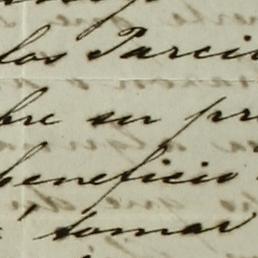 los Parci
bre su pr
beneficio
tomar